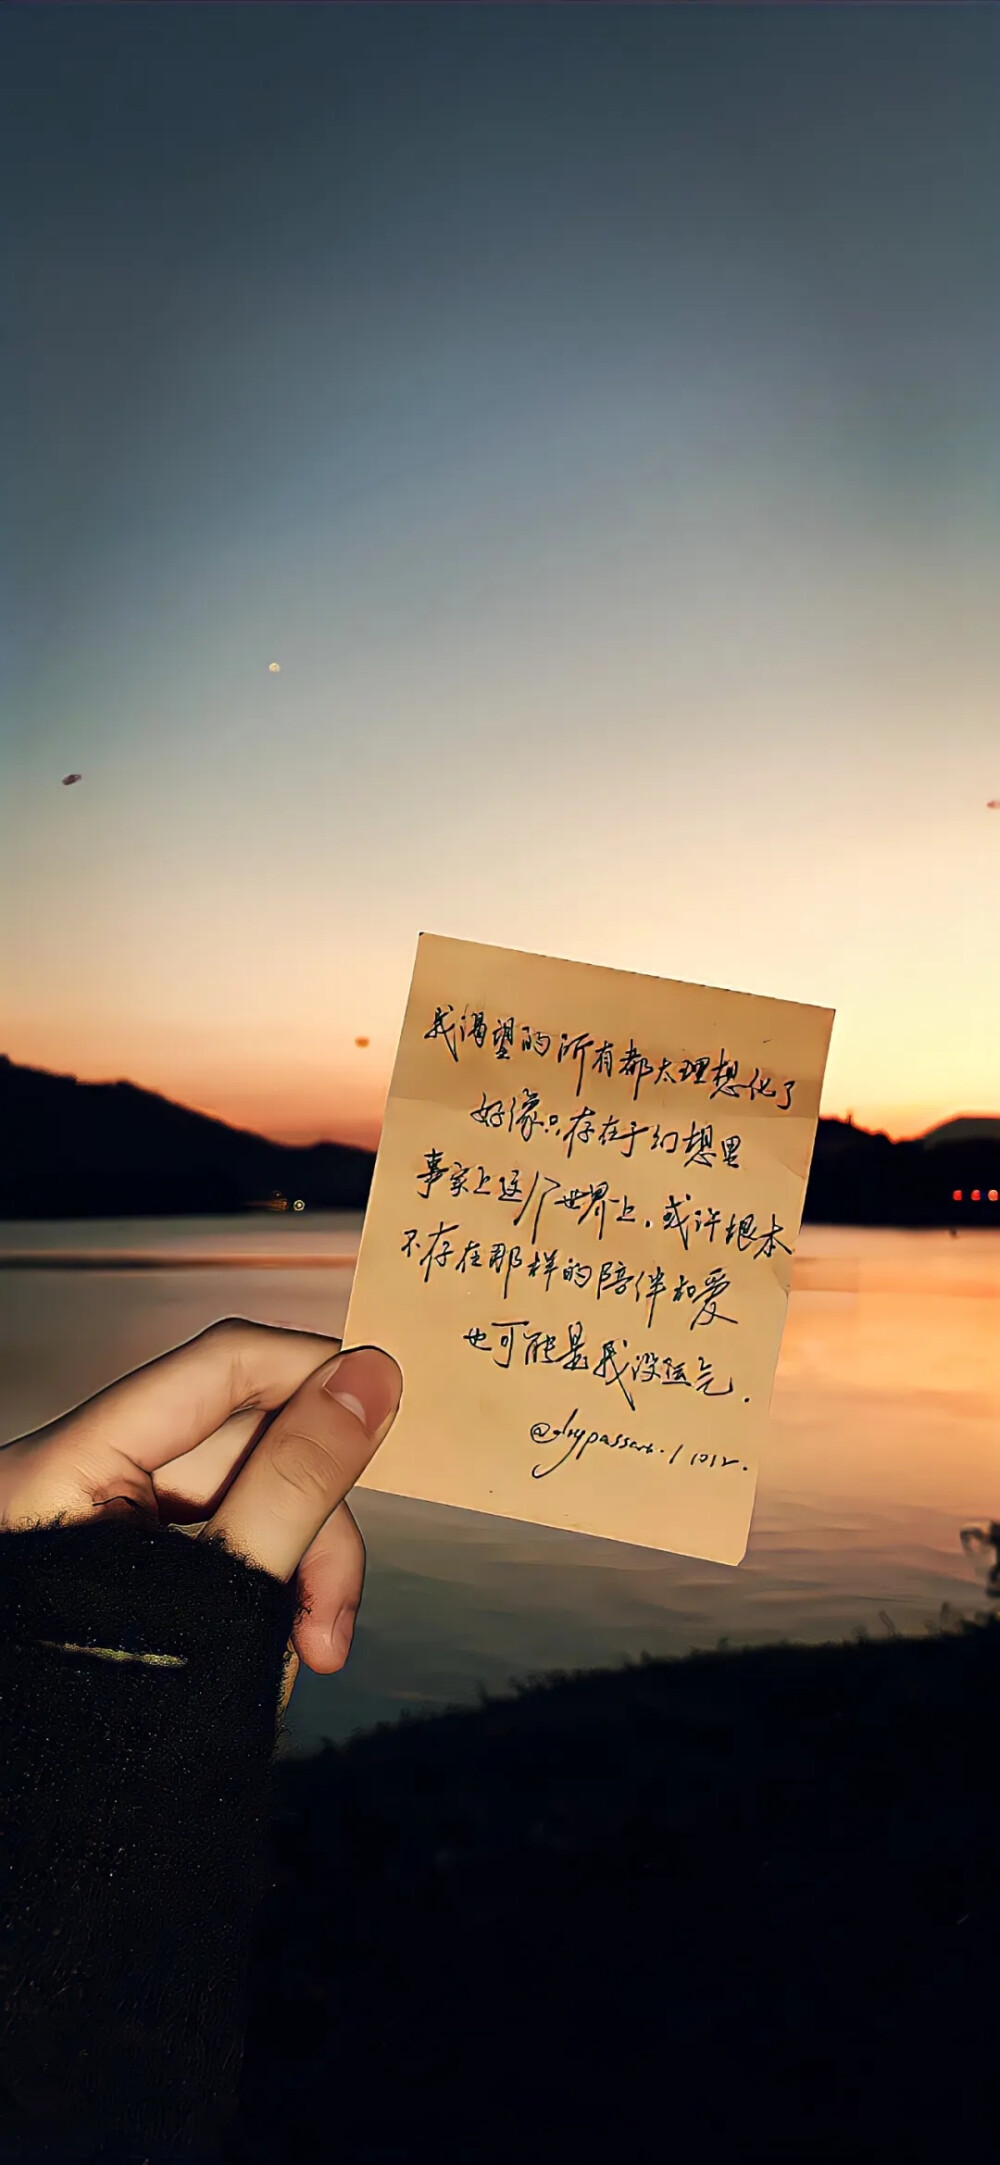 我渴望的所有都太理想化了
好像只存在于幻想里
事实上这个世界上，或许根本
不存在那样的陪伴和爱
也可能是我没运气.
1012.